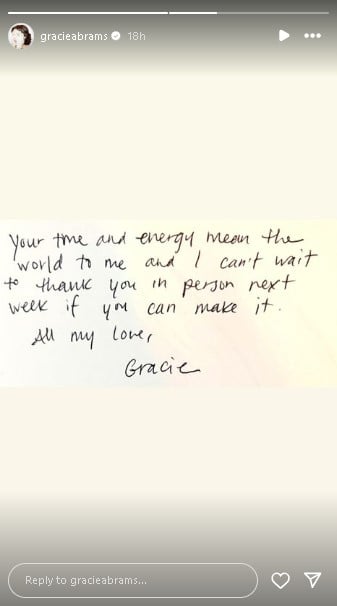 gracieabrams 18h
Your time and energy mean the
world to me and I can't wait
to thank you in person next
week if you can make it.
All my love,
Gracie
Reply to gracieabrams...